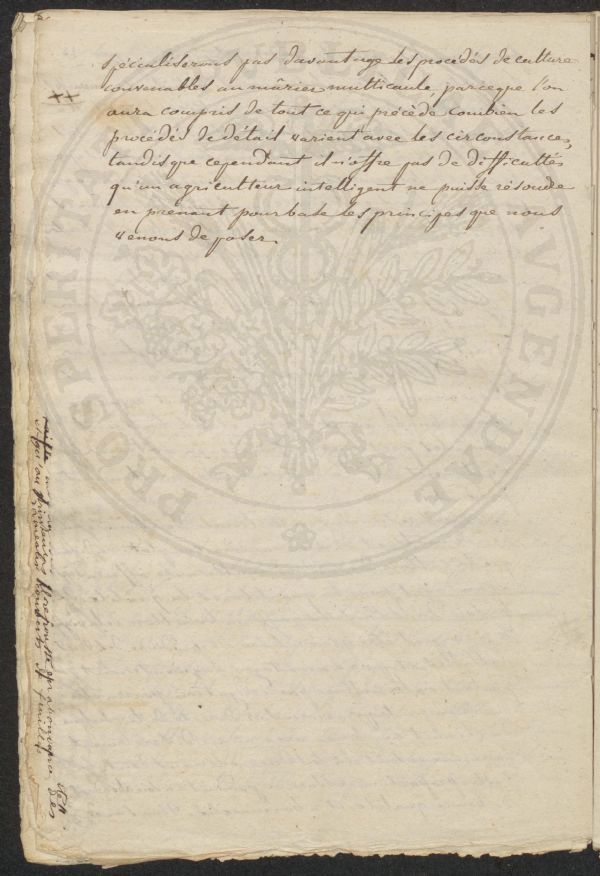 spécialiserons pas davantage les procédés de culture
convenables au mûrier multicaule, parceque l'on
aura compris de tout ce qui précède combien les
procédés de détail varient avec les circonstances,
tandisque cependant il n'offre pas de difficultés
qu'un agriculteur intelligent ne puisse résoudre
en prenant pour base les principes que nous
venons de poser.
PROSPERITA AVGENDAE
qui au printemps
rameaux couverts de feuilles